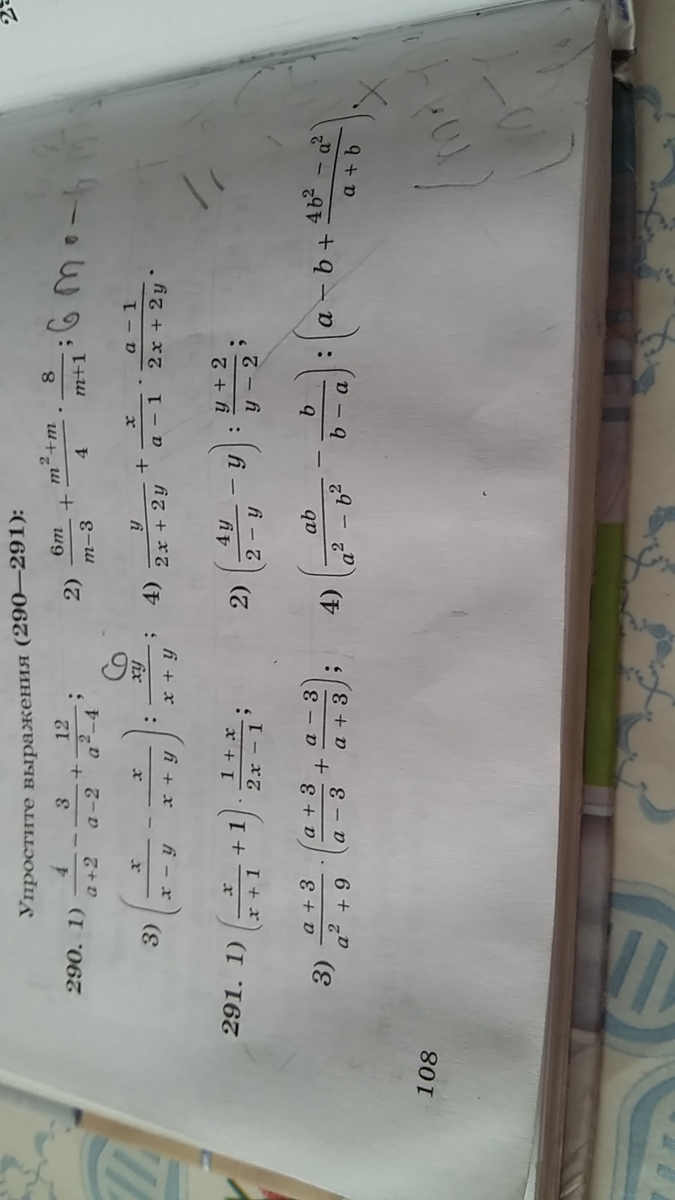 Упростите выражения (290—291):
290. 1) 4/(a+2) − 3/(a−2) + 12/(a²−4); 2) 6m/(m−3) + (m²+m)/4 · 8/(m+1);
3) (x/(x − y) − x/(x + y)) : xy/(x + y); 4) y/(2x + 2y) + x/(a − 1) · (a − 1)/(2x + 2y).
291. 1) (x/(x + 1) + 1) · (1 + x)/(2x − 1); 2) (4y/(2 − y) − y) : (y + 2)/(y − 2);
3) (a + 3)/(a² + 9) · ((a + 3)/(a − 3) + (a − 3)/(a + 3)); 4) (ab/(a² − b²) − b/(b − a)) : (a − b + (4b² − a²)/(a + b)).
108